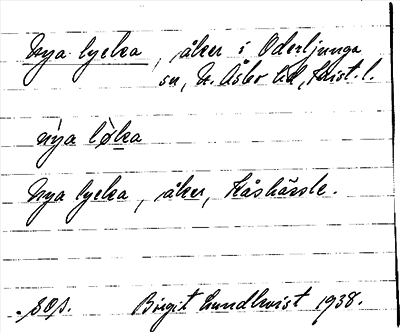 Nya lycka, åker i Oderljunga
sn, N. Åsbo hd, Krist. l.
nỳa lỳka
Nya lycka, åker, Kåshässle.
Birgit Lundkvist 1938.